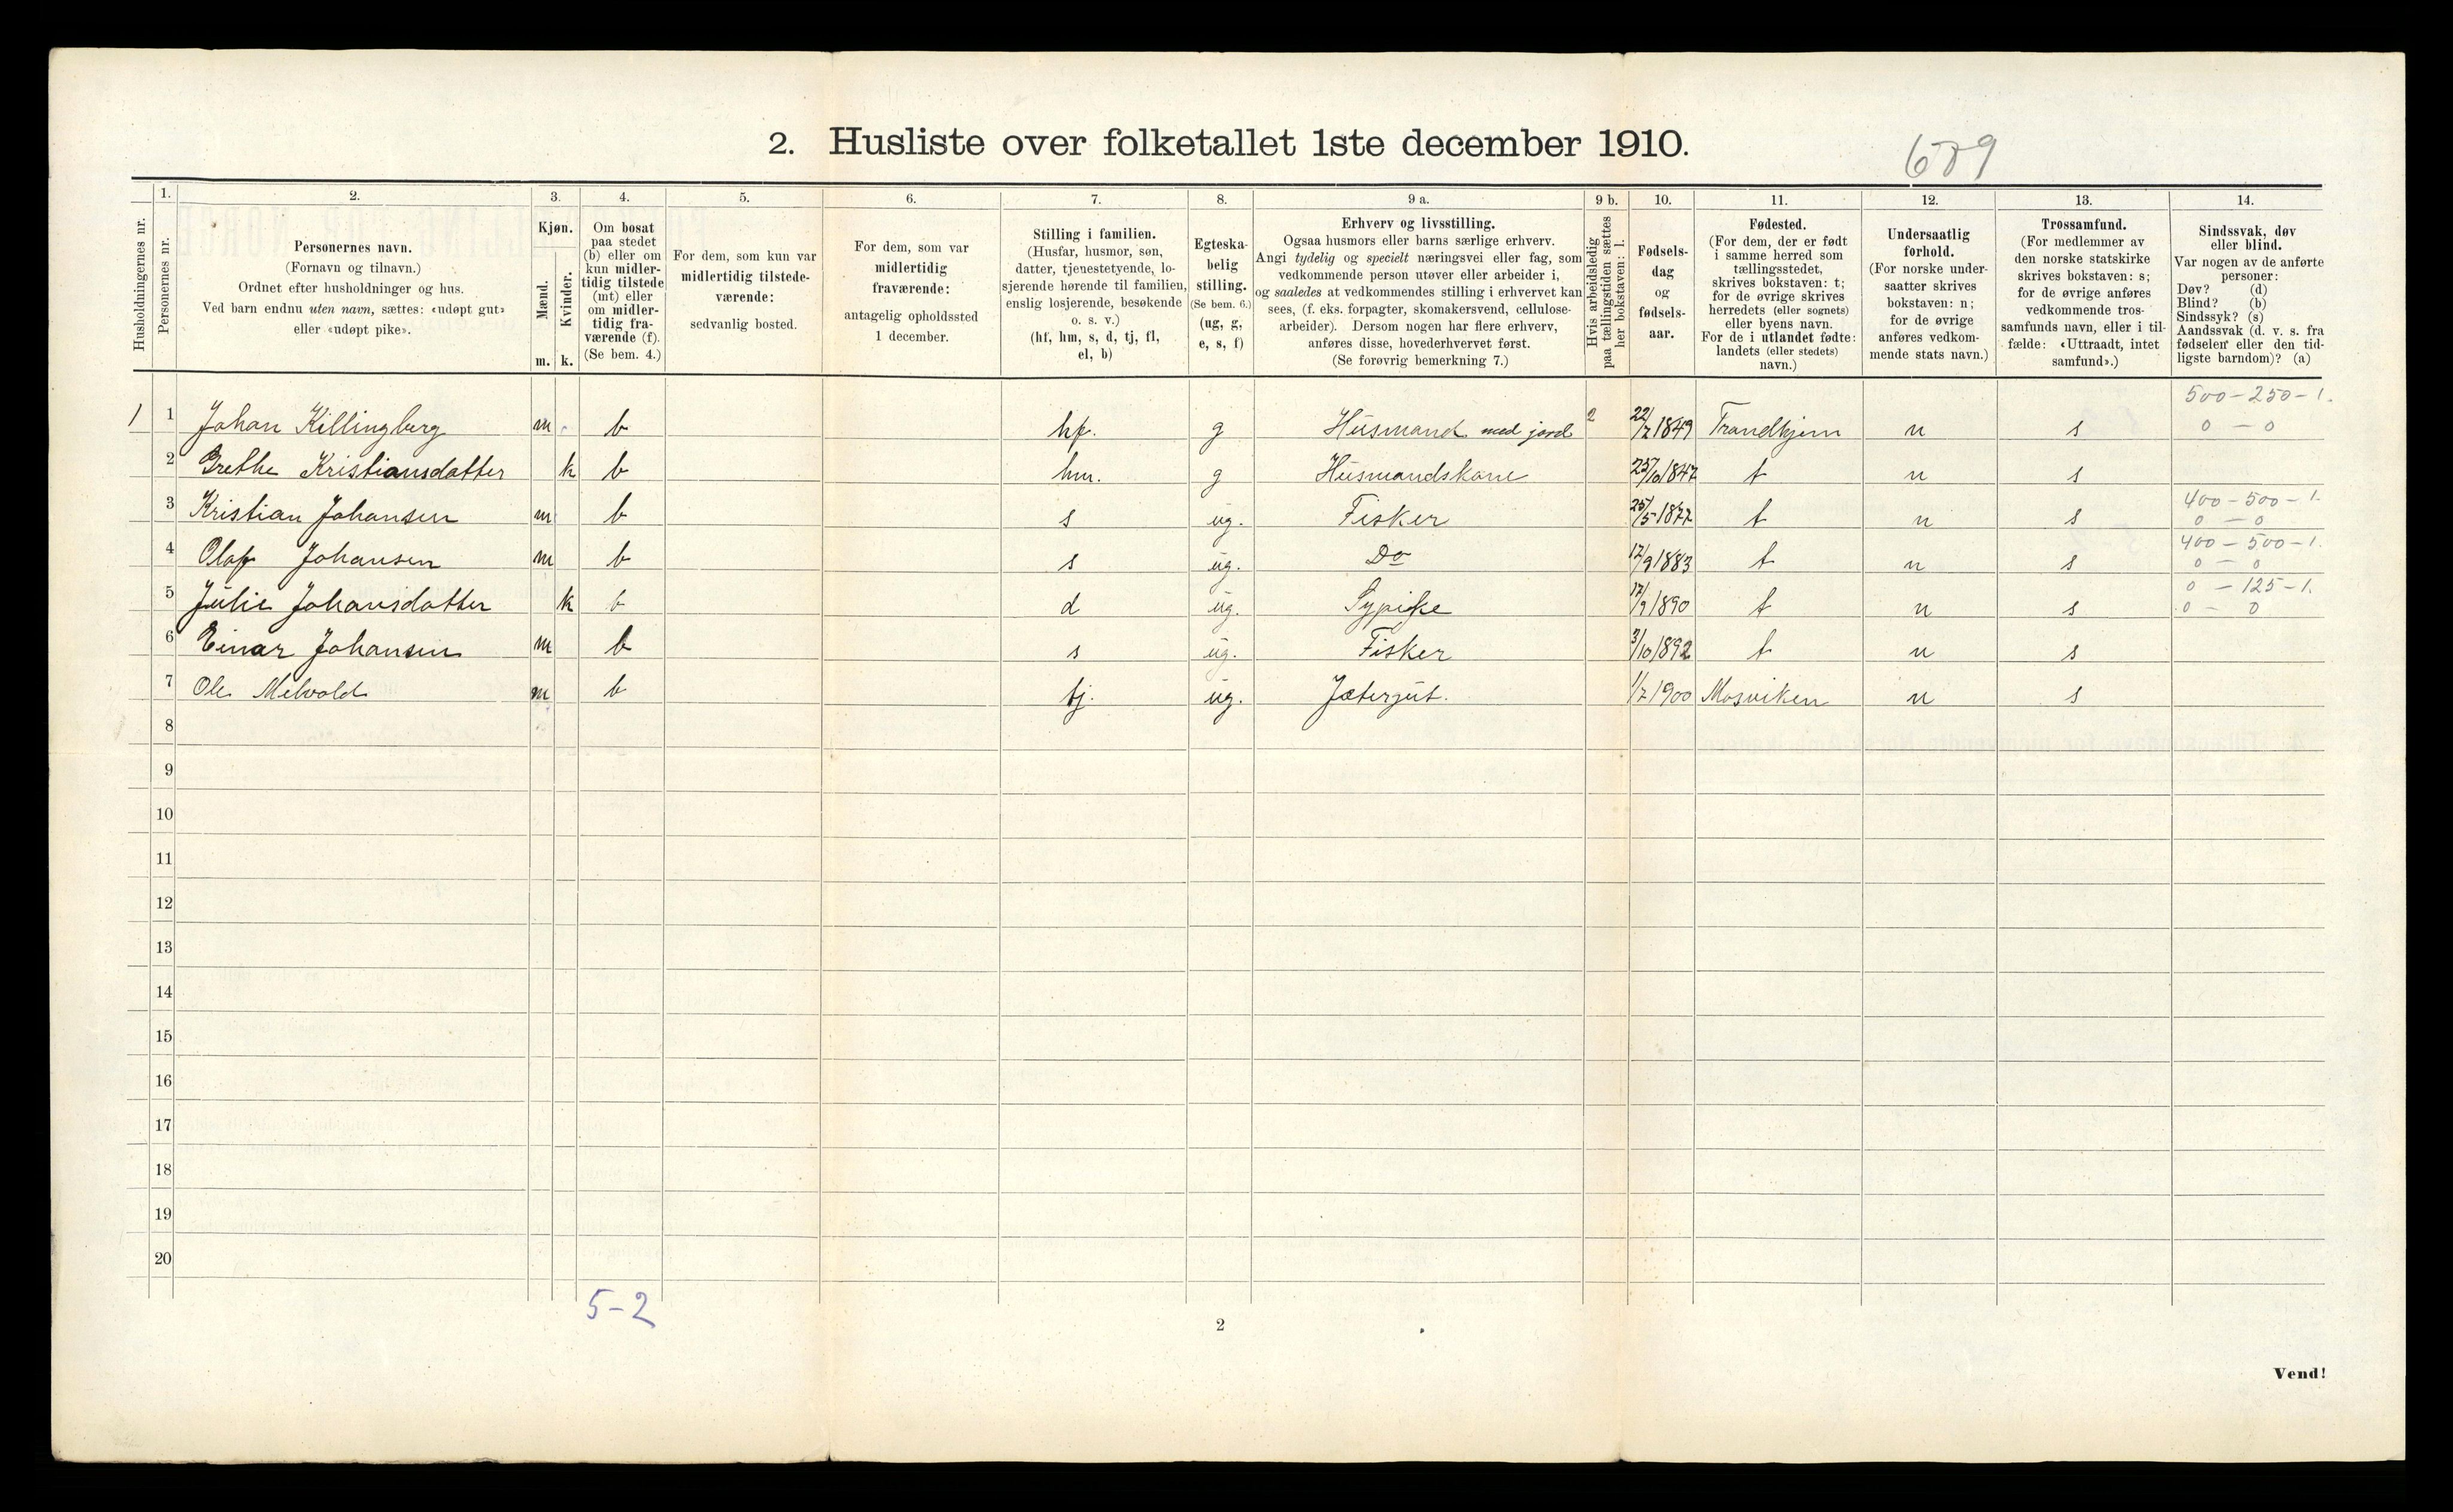 2. Husliste over folketallet 1ste december 1910.
689
1. 2. 3. 4. 5. 6. 7. 8. 9 a. 9 b. 10. 11. 12. 13. 14.
Husholdningernes nr.
Personernes nr.
Personernes navn.
(Fornavn og tilnavn.)
Ordnet efter husholdninger og hus.
Ved barn endnu uten navn, sættes: «udøpt gut»
eller «udøpt pike».
Kjøn.
Mænd.
Kvinder.
m. k.
Om bosat
paa stedet
(b) eller om
kun midler-
tidig tilstede
(mt) eller
om midler-
tidig fra-
værende (f).
(Se bem. 4.)
For dem, som kun var
midlertidig tilstede-
værende:
sedvanlig bosted.
For dem, som var
midlertidig
fraværende:
antagelig opholdssted
1 december.
Stilling i familien.
(Husfar, husmor, søn,
datter, tjenestetyende, lo-
sjerende hørende til familien,
enslig losjerende, besøkende
o. s. v.)
(hf, hm, s, d, tj, fl,
el, b)
Egteska-
belig
stilling.
(Se bem. 6.)
(ug, g,
e, s, f)
Erhverv og livsstilling.
Ogsaa husmors eller barns særlige erhverv.
Angi tydelig og specielt næringsvei eller fag, som
vedkommende person utøver eller arbeider i,
og saaledes at vedkommendes stilling i erhvervet kan
sees, (f. eks. forpagter, skomakersvend, cellulose-
arbeider). Dersom nogen har flere erhverv,
anføres disse, hovederhvervet først.
(Se forøvrig bemerkning 7.)
Hvis arbeidsledig
paa tællingstiden sættes
her bokstaven: l.
Fødsels-
dag
og
fødsels-
aar.
Fødested.
(For dem, der er født
i samme herred som
tællingsstedet,
skrives bokstaven: t;
for de øvrige skrives
herredets (eller sognets)
eller byens navn.
For de i utlandet fødte:
landets (eller stedets)
navn.)
Undersaatlig
forhold.
(For norske under-
saatter skrives
bokstaven: n;
for de øvrige
anføres vedkom-
mende stats navn.)
Trossamfund.
(For medlemmer av
den norske statskirke
skrives bokstaven: s;
for de øvrige anføres
vedkommende tros-
samfunds navn, eller i til-
fælde: «Uttraadt, intet
samfund».)
Sindssvak, døv
eller blind.
Var nogen av de anførte
personer:
Døv? (d)
Blind? (b)
Sindssyk? (s)
Aandssvak (d. v. s. fra
fødselen eller den tid-
ligste barndom)? (a)
500 - 250 - 1.
1 1 Johan Killingberg m b hf. g Husmand med jord 2 22/7 1849 Trondhjem n s 0 - 0
2 Grethe Kristiansdatter k b hm. g Husmandskone 25/10 1847 t n s
400 - 500 - 1.
3 Kristian Johansen m b s ug. Fisker 25/5 1877 t n s 0 - 0
400 - 500 - 1.
4 Olaf Johansen m b s ug. Do 17/9 1883 t n s 0 - 0
0 - 125 - 1.
5 Julie Johansdatter k b d ug. Sypike 17/9 1890 t n s 0 - 0
6 Einar Johansen m b s ug. Fisker 3/10 1892 t n s
7 Ole Melvold m b tj. ug. Jætergut. 1/7 1900 Mosviken n s
8
9
10
11
12
13
14
15
16
17
18
19
20
5-2
2
Vend!